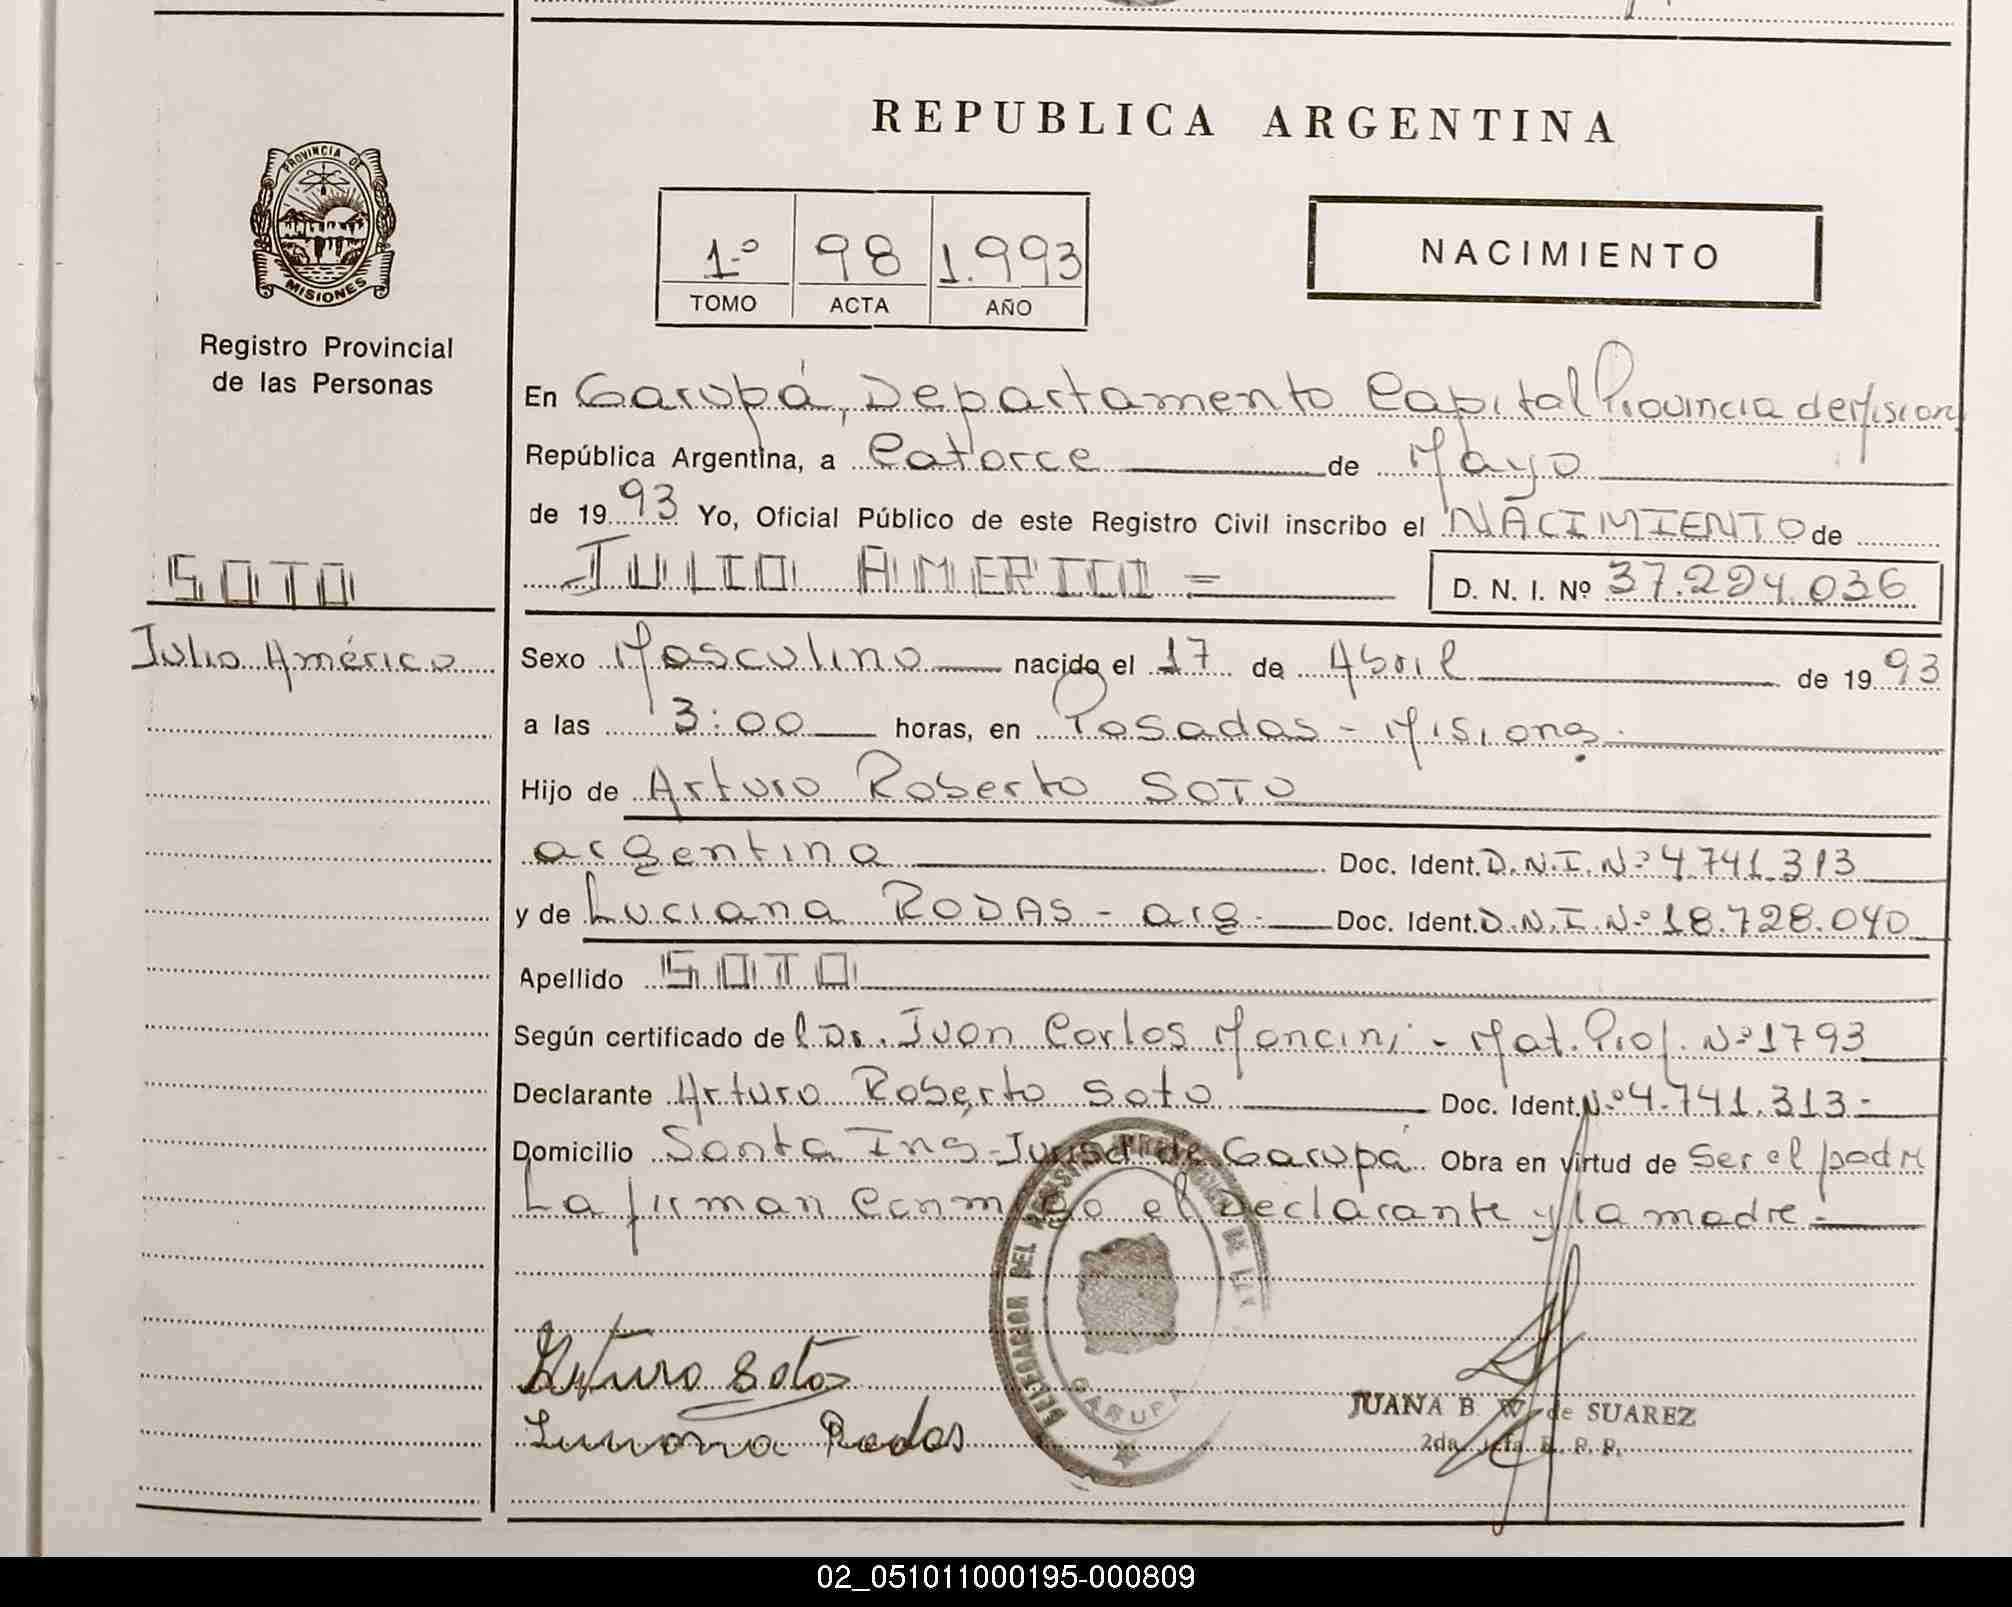 REPUBLICA ARGENTINA
PROVINCIA DE
MISIONES
Registro Provincial
de las Personas
1º 98 1.993
TOMO ACTA AÑO
NACIMIENTO
En Garupá, Departamento Capital Provincia de Mision
República Argentina, a Catorce de Mayo
de 1993 Yo, Oficial Público de este Registro Civil inscribo el NACIMIENTO de
JULIO AMERICO = D. N. I. Nº 37.224.036
SOTO
Julio Américo
Sexo Masculino nacido el 17 de Abril de 1993
a las 3:00 horas, en Posadas - Misiones.
Hijo de Arturo Roberto SOTO
argentino Doc. Ident. D.N.I. Nº 4.741.313
y de Luciana RODAS - arg. Doc. Ident. D.N.I. Nº 18.728.040
Apellido SOTO
Según certificado del Dr. Juan Carlos Mancini - Mat. Prof. Nº 1793
Declarante Arturo Roberto Soto Doc. Ident. Nº 4.741.313-
Domicilio Santa Ines - Jurisd. de Garupá Obra en virtud de Ser el padre
La firman conmigo el Declarante y la madre.-
DELEGACION DEL DE LAS
GARUPA
Arturo Soto
Luciana Rodas
JUANA B. W. de SUAREZ
2da. Jefa R. P. P.
02_051011000195-000809